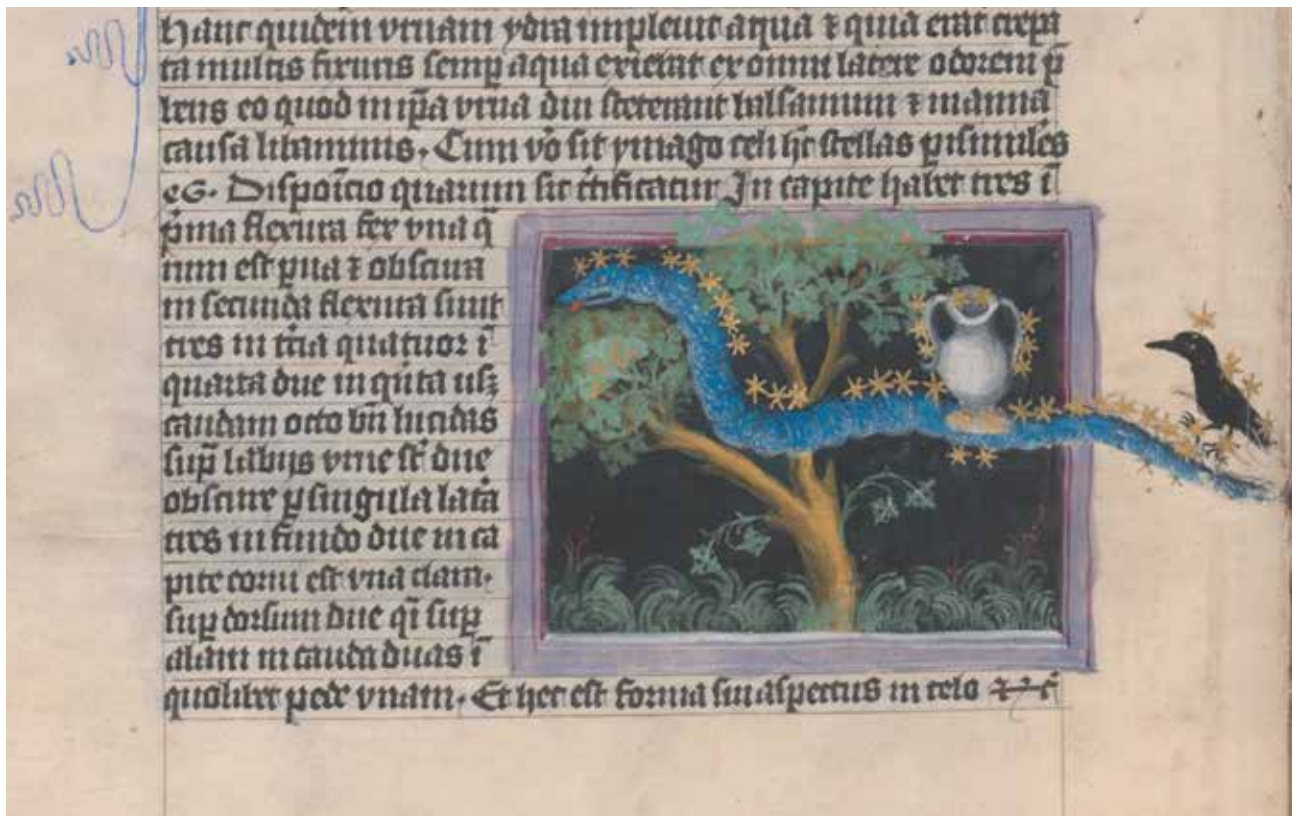 Hanc quidem vrnam ydra impleuit aqua ⁊ quia erat crepa
ta multis fixuris semꝑ aqua exiebat ex omni latere odorem p̄
lens eo quod in ip̄a vrna diu steterant balsamum ⁊ manna
causa libaminis. Cum v̊o sit ymago celi hꝫ stellas ꝑsimiles
Disposic̄io quarum sic c̄tificatur In capite habet tres ī
p̄ma flexura sex vna q̄
rum est ꝑua ⁊ obscura
in secunda flexura sunt
tres in t̄cia quatuor ī
quarta due in qn̄ta usꝫ
caudam octo bn̄ lucidas
suꝑ labijs vrne st̄ due
obscure ꝑ singula lat̄a
tres in fundo due in ca
pite corui est vna clara.
suꝑ dorsum due q̄i suꝑ
alam in cauda duas ī
quolibet pede vnam. Et hec est forma sui aspectus in celo